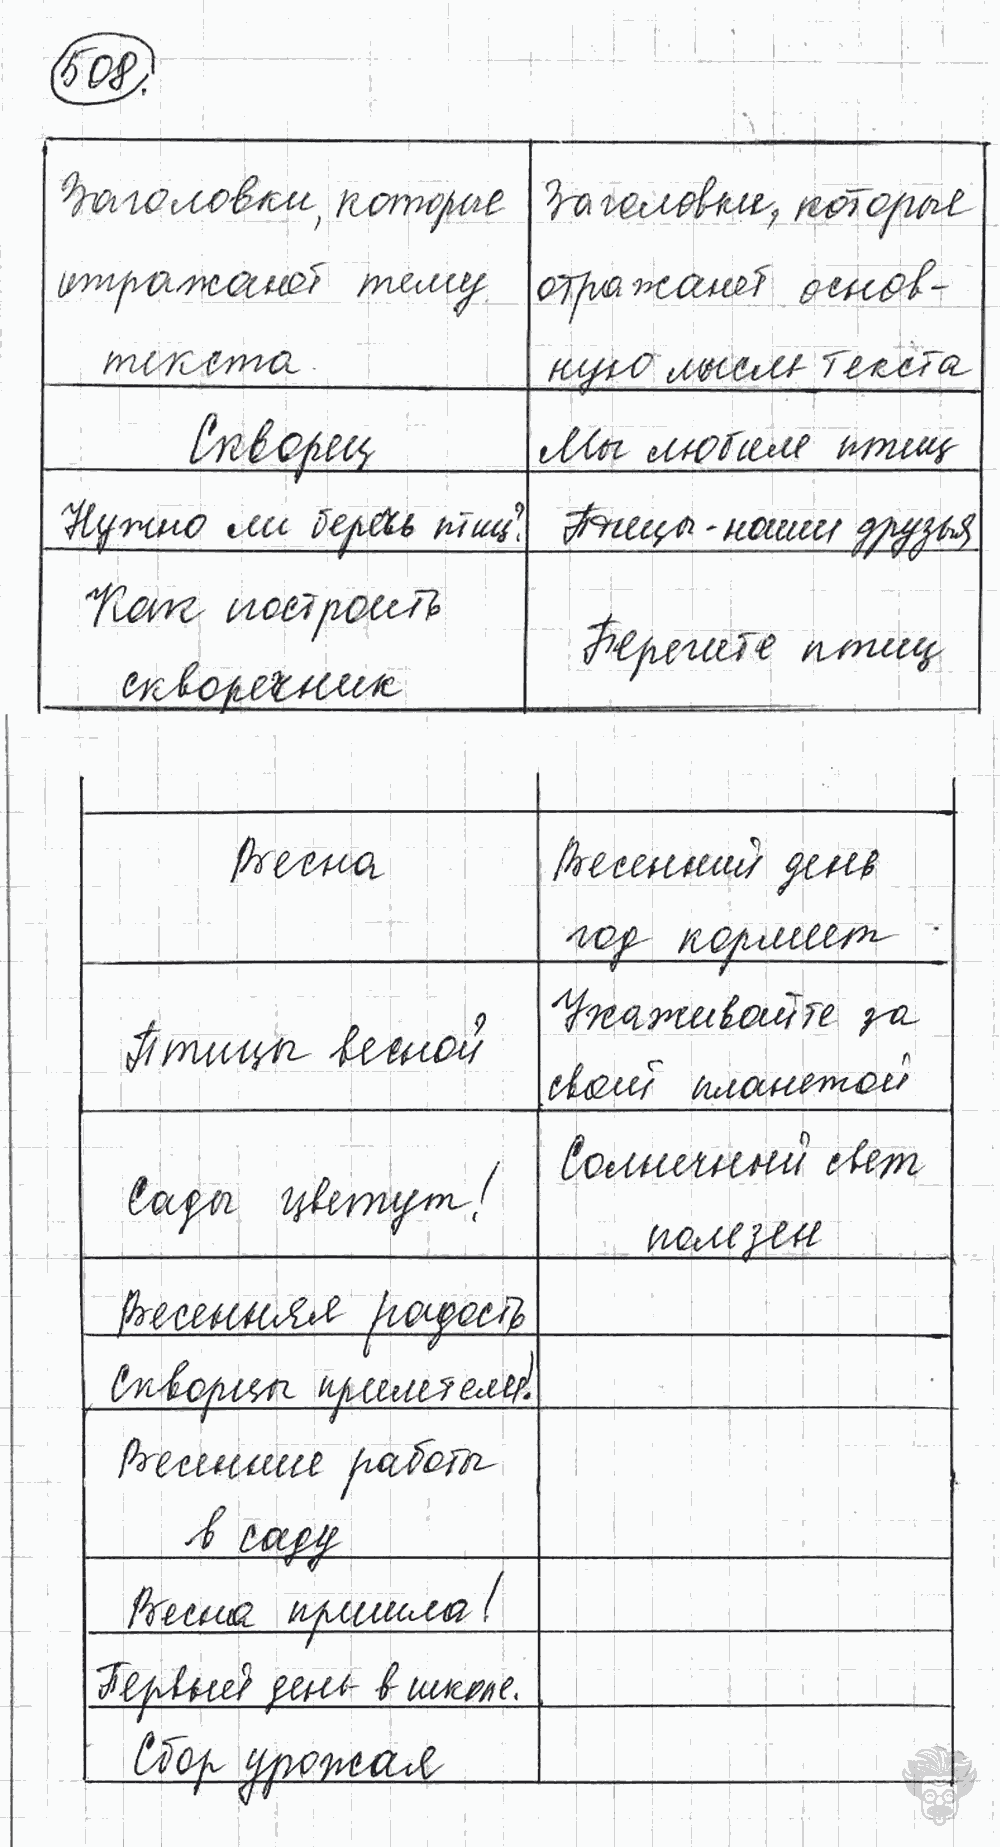 508.
Заголовки, которые
отражают тему
текста
Заголовки, которые
отражают основ-
ную мысль текста
Скворец
Мы любим птиц
Нужно ли беречь птиц?
Птицы - наши друзья
Как построить
скворечник
Берегите птиц
Весна
Весенний день
год кормит
Птицы весной
Ухаживайте за
своей планетой
Сады цветут!
Солнечный свет
полезен
Весенняя радость
Скворцы прилетели!
Весенние работы
в саду
Весна пришла!
Первый день в школе.
Сбор урожая